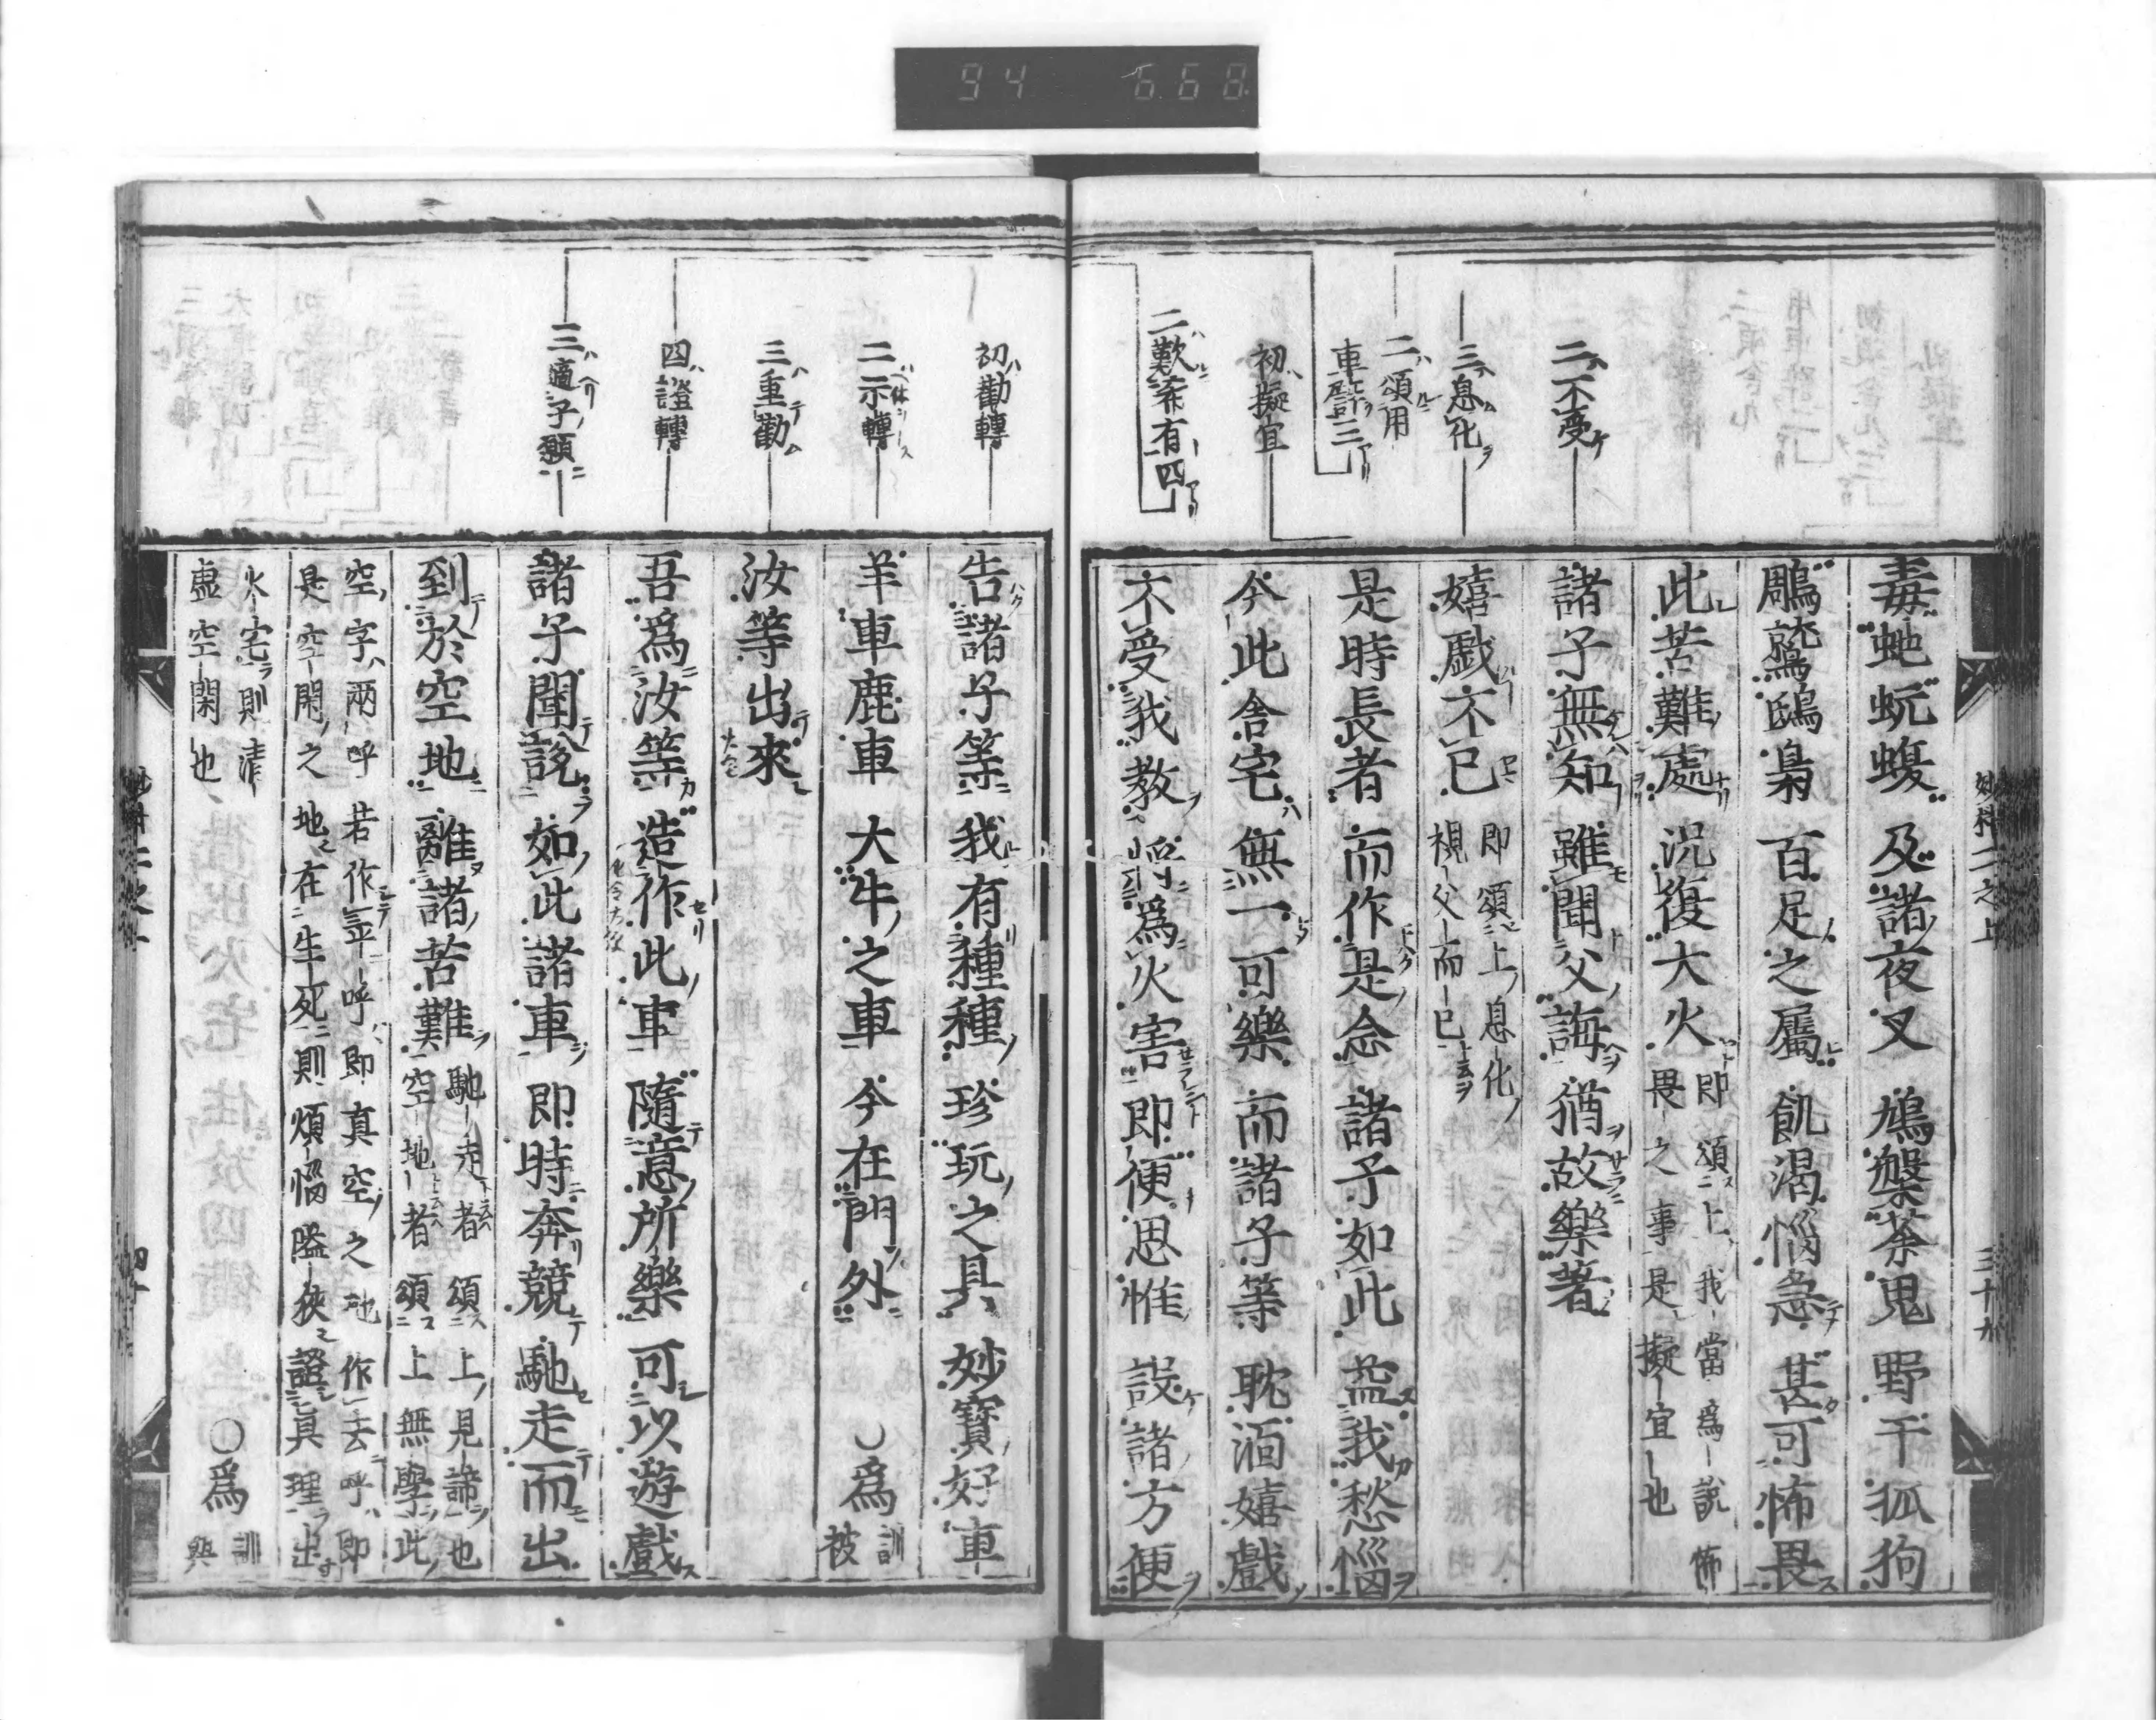 94 668
二不受
三息化
二頌用
車譬三
初擬宜
二歎希有四
毒虵蚖蝮及諸夜叉鳩槃荼鬼野干狐狗
鵰鷲鴟梟百足之屬飢渴惱急甚可怖畏
此苦難處況復大火即頌上我當爲說怖
畏之事是擬宜也
諸子無知雖聞父誨猶故樂著
嬉戲不已即頌上息化
視父而已
是時長者而作是念諸子如此益我愁惱
今此舍宅無一可樂而諸子等耽湎嬉戲
不受我教將爲火害即便思惟設諸方便
妙 二之上
三十九
初勸轉
二示轉
三重勸
四證轉
三適子願
告諸子等我有種種珍玩之具妙寶好車
羊車鹿車大牛之車今在門外○爲訓
被
汝等出來
吾爲汝等造作此車隨意所樂可以遊戲
諸子聞說如此諸車即時奔競馳走而出
到於空地離諸苦難馳走者頌上見諦也
空地者頌上無學此
空字兩呼若作平呼即真空之地作去呼即
是空閑之地在生死則煩惱隘狹證真理出
火宅則清
虛空閑也○爲訓
與